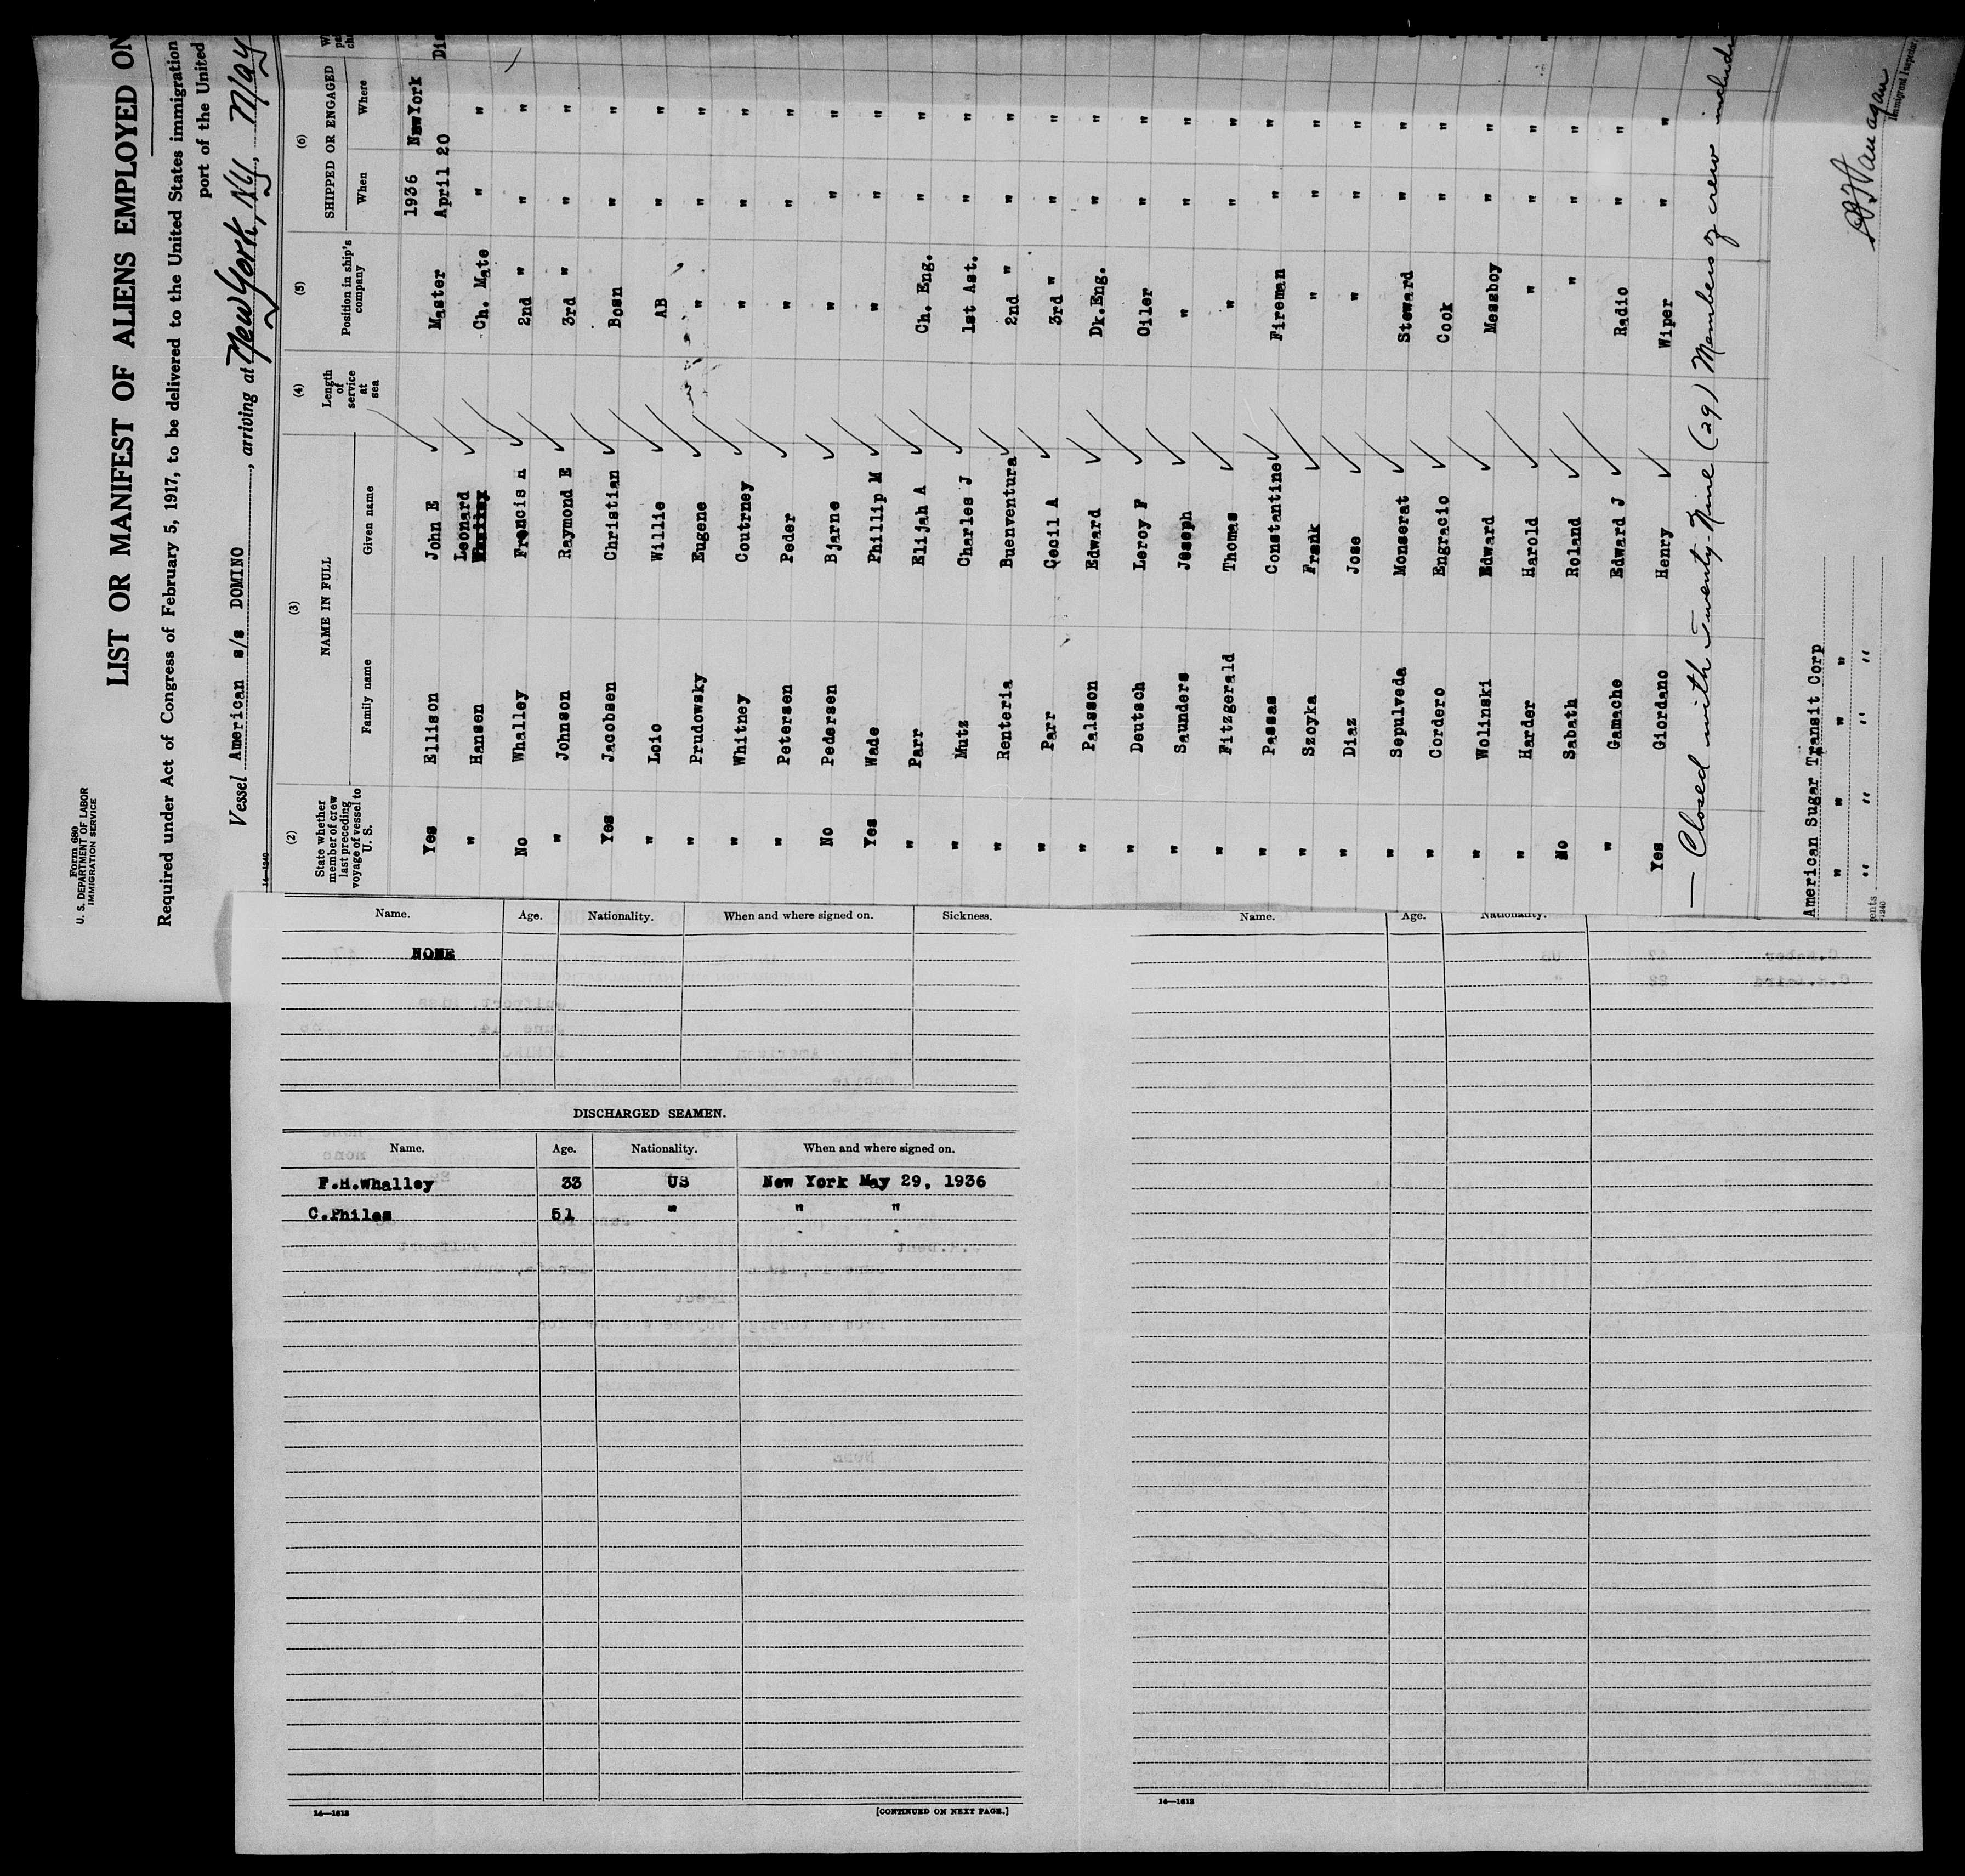 Form 680
U. S. DEPARTMENT OF LABOR
IMMIGRATION SERVICE
LIST OR MANIFEST OF ALIENS EMPLOYED ON
Required under Act of Congress of February 5, 1917, to be delivered to the United States immigration
port of the United
Vessel American s/s DOMINO, arriving at New York, N.Y., May
14-1240
(2) (3) (4) (5) (6)
State whether member of crew last preceding voyage of vessel to U. S. NAME IN FULL Length of service at sea Position in ship's company SHIPPED OR ENGAGED
Family name Given name When Where
1936 New York
Yes Ellison John E Master April 20 Dis
" Hansen Leonard Ch. Mate " "
No Whalley Francis H 2nd " " "
" Johnson Raymond E 3rd " " "
Yes Jacobsen Christian Bosn " "
" Loio Willie AB " "
" Prudowsky Eugene " " "
" Whitney Coutrney " " "
" Petersen Peder " " "
No Pedersen Bjarne " " "
Yes Wade Phillip M " " "
" Parr Elijah A Ch. Eng. " "
" Mutz Charles J 1st Ast. " "
" Renteria Buenventura 2nd " " "
" Parr Cecil A 3rd " " "
" Palsson Edward Dk.Eng. " "
" Deutsch Leroy F Oiler " "
" Saunders Joseph " " "
" Fitzgerald Thomas " " "
" Passas Constantine Fireman " "
" Szoyka Frank " " "
" Diaz Jose " " "
" Sepulveda Monserat Steward " "
" Cordero Engracio Cook " "
" Wolinski Edward Messboy " "
" Harder Harold " " "
No Sabath Roland " " "
" Gamache Edward J Radio " "
Yes Giordano Henry Wiper " "
— Closed with Twenty-Nine (29) Members of crew
American Sugar Transit Corp
" " " "
" " " "
ents
1240
Immigrant Inspector
Name. Age. Nationality. When and where signed on. Sickness.
NONE
DISCHARGED SEAMEN.
Name. Age. Nationality. When and where signed on.
F.H.Whalley 33 US New York May 29, 1936
C.Philes 51 " " "
14—1613
[CONTINUED ON NEXT PAGE.]
Name. Age. Nationality.
14—1613